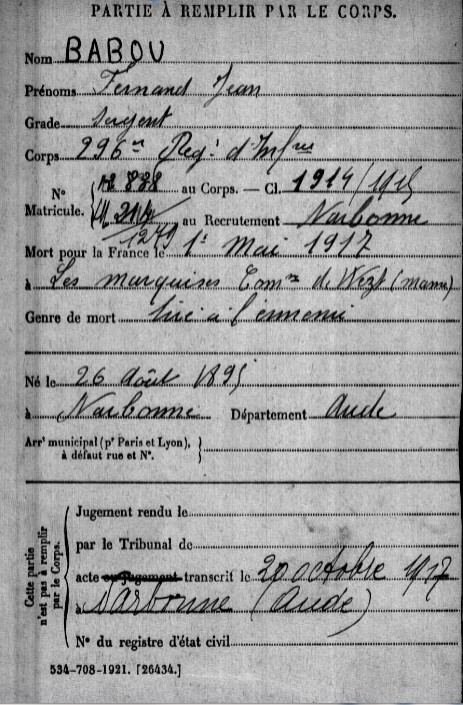 PARTIE À REMPLIR PAR LE CORPS.
Nom BABOU
Prénoms Fernand Jean
Grade Sergent
Corps 296e Reg.t d'Inf.rie
N° 12 838 au Corps. — Cl. 1914/1915
Matricule. au Recrutement Narbonne
1249
Mort pour la France le 1er Mai 1917
à Les marquises Com.ne de (marne)
Genre de mort tué à l'ennemi
Né le 26 Août 1895
à Narbonne Département Aude
Arrt municipal (pr Paris et Lyon),
à défaut rue et N°.
Cette partie
n'est pas à remplir
par le Corps.
Jugement rendu le
par le Tribunal de
acte ou jugement transcrit le 20 octobre 1917
à Narbonne (Aude)
N° du registre d'état civil
534-708-1921. [26434.]